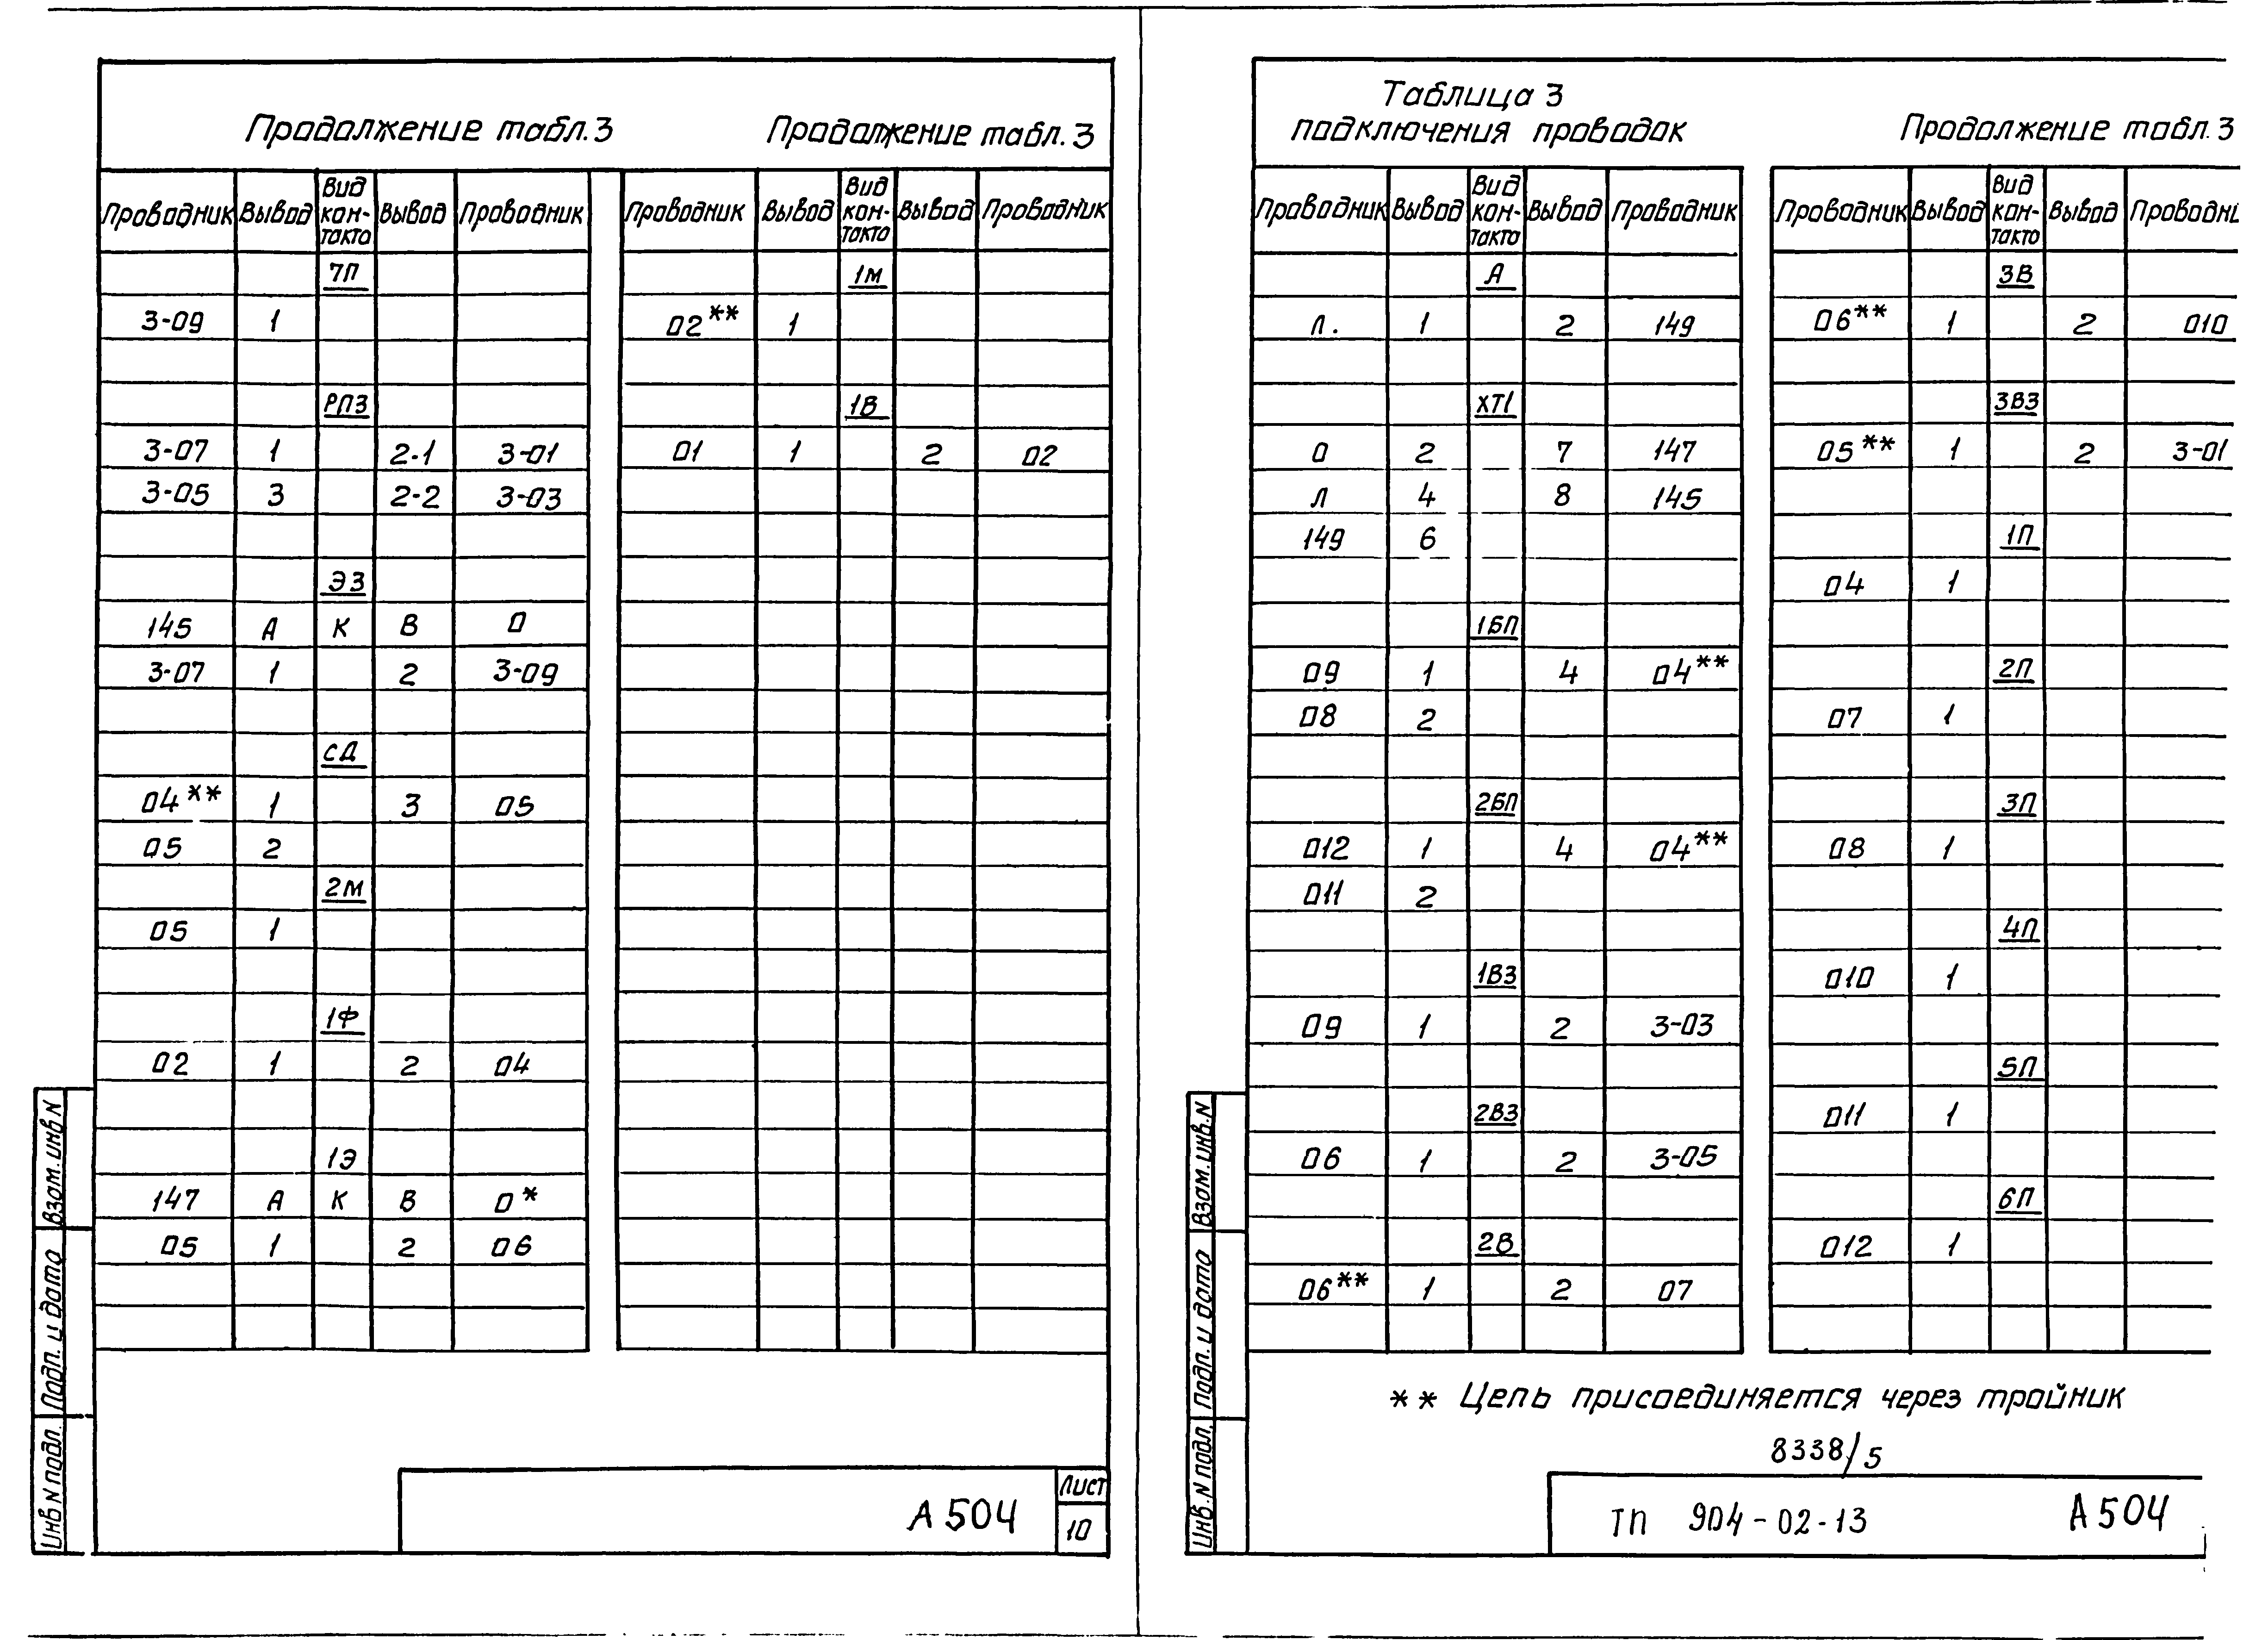 Продолжение табл.3 Продолжение табл.3
Проводник Вывод Вид кон-такта Вывод Проводник
7П
3-09 1
РП3
3-07 1 2-1 3-01
3-05 3 2-2 3-03
Э3
145 А К В 0
3-07 1 2 3-09
СД
04** 1 3 05
05 2
2М
05 1
1Ф
02 1 2 04
1Э
147 А К В 0*
05 1 2 06
Проводник Вывод Вид кон-такта Вывод Проводник
1М
02** 1
1В
01 1 2 02
А504
Лист
10
Взам. инв N
Подп. и дата
Инв N подл.
Таблица 3
подключения проводок
Продолжение табл.3
Проводник Вывод Вид кон-такта Вывод Проводник
А
Л. 1 2 149
ХТ1
0 2 7 147
Л 4 8 145
149 6
1БП
09 1 4 04**
08 2
2БП
012 1 4 04**
011 2
1В3
09 1 2 3-03
2В3
06 1 2 3-05
2В
06** 1 2 07
Проводник Вывод Вид кон-такта Вывод Проводни
3В
06** 1 2 010
3В3
05** 1 2 3-01
1П
04 1
2П
07 1
3П
08 1
4П
010 1
5П
011 1
6П
012 1
** Цепь присоединяется через тройник
8338/5
ТП 904-02-13 А504
Взам. инв. N
Подп. и дата
Инв. N подл.